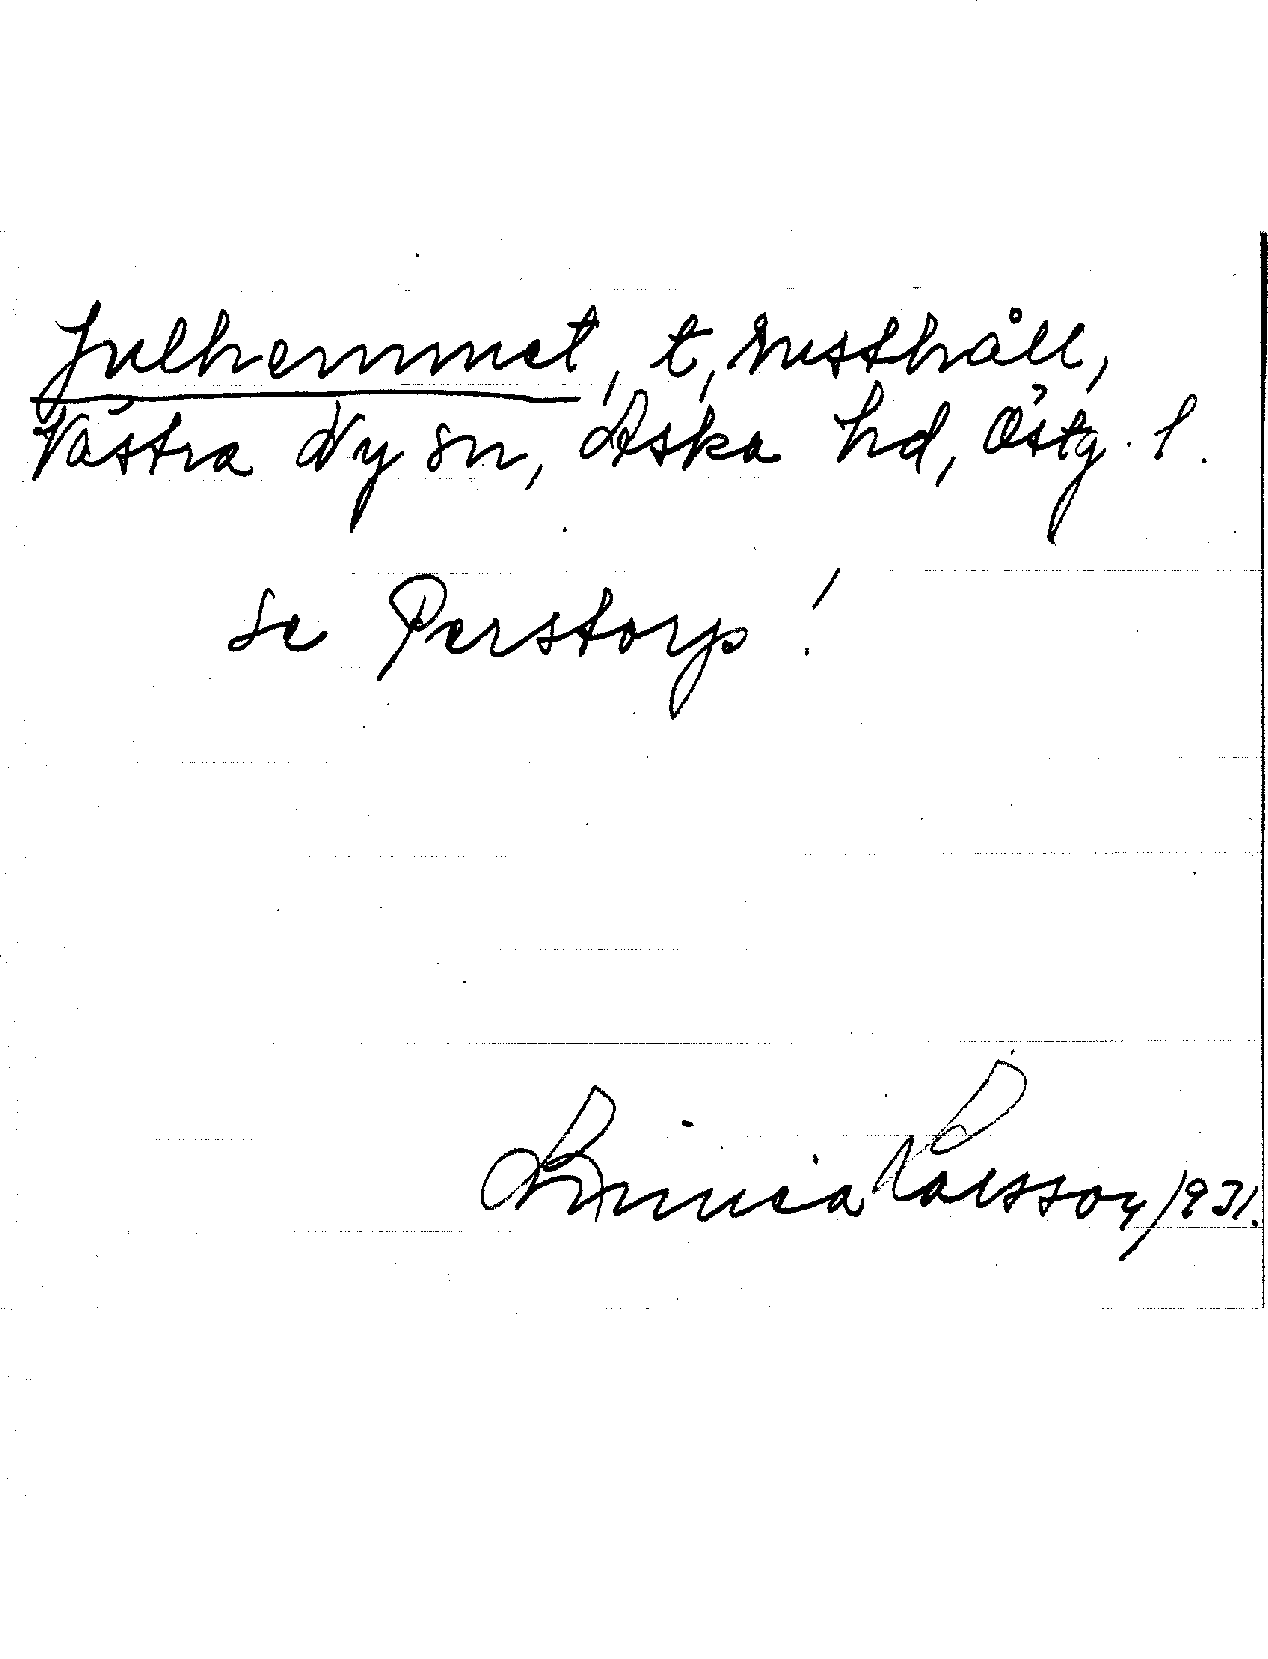 Julhemmet, t, Rusthåll,
Västra Ny sn, Aska hd, Östg. l.
se Perstorp!
Larsson 1931.